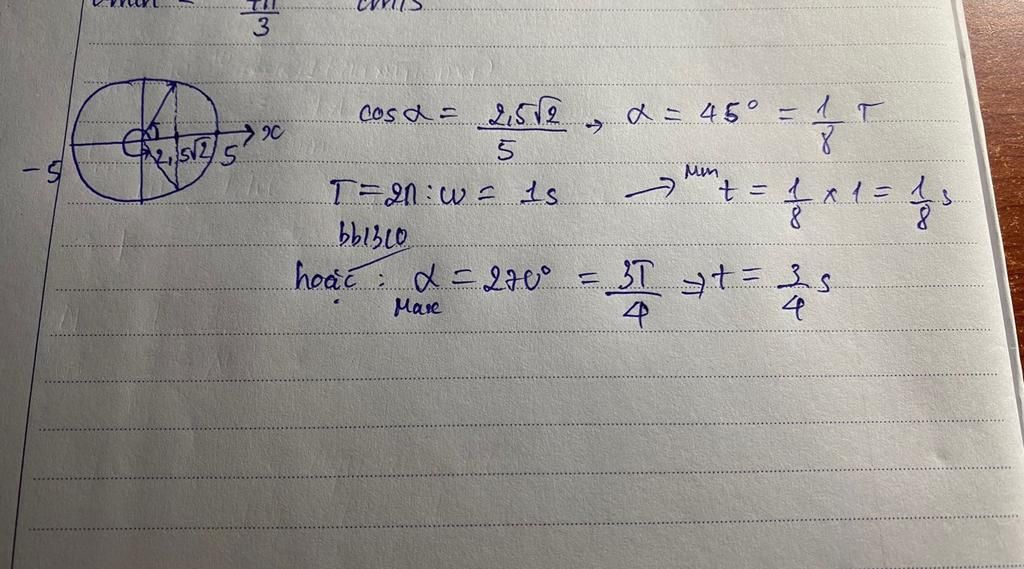 3
cm/s
-5 2,5√2 5 x
cosα = 2,5√2/5 → α = 45° = 1/8 T
T = 2π : w = 1s → Min t = 1/8 x 1 = 1/8 s
hoặc : α Max = 270° = 3T/4 => t = 3/4 s